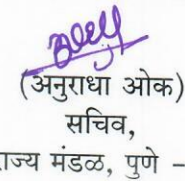 (अनुराधा ओक)
सचिव,
राज्य मंडळ, पुणे -